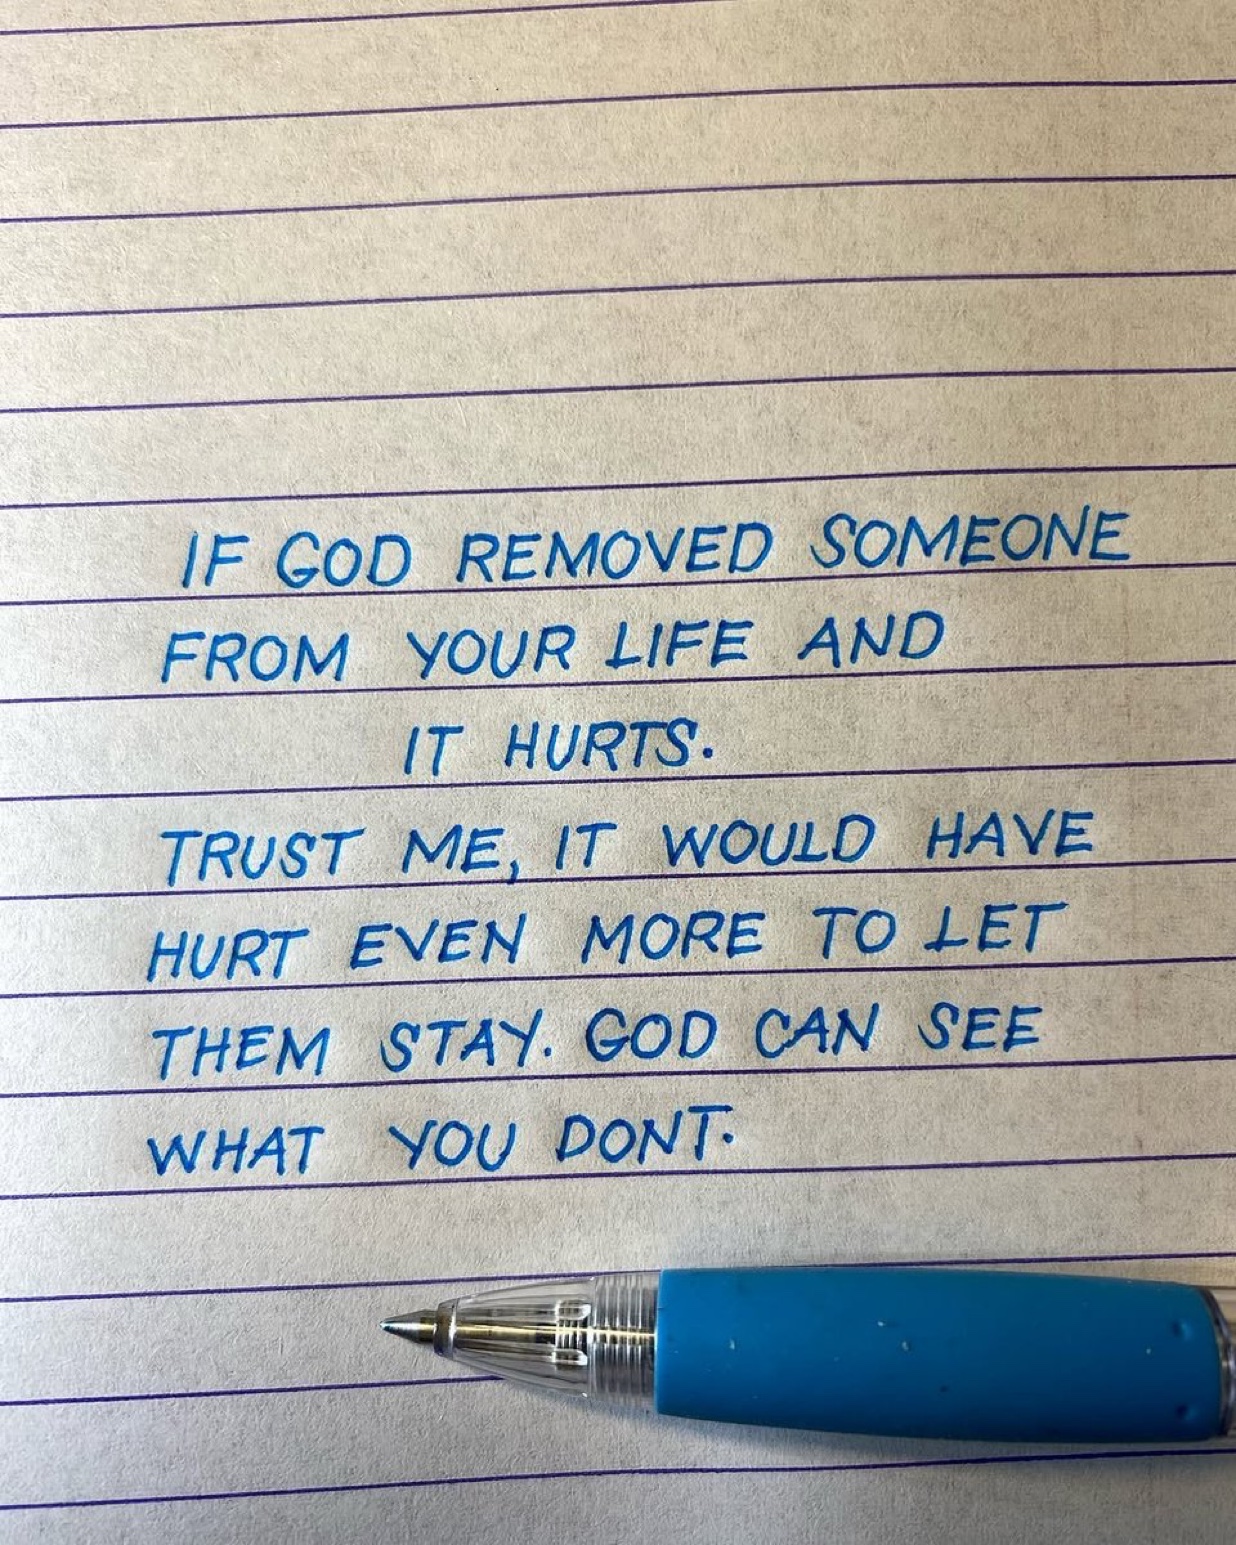 IF GOD REMOVED SOMEONE
FROM YOUR LIFE AND
IT HURTS.
TRUST ME, IT WOULD HAVE
HURT EVEN MORE TO LET
THEM STAY. GOD CAN SEE
WHAT YOU DONT.